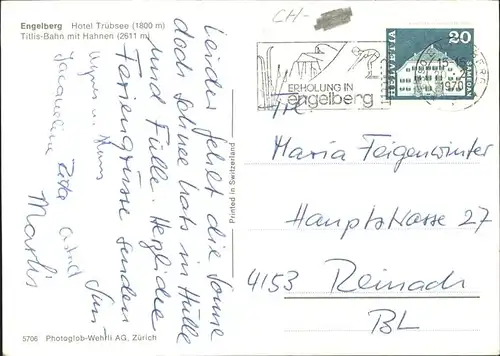 Engelberg Hotel Trübsee (1800 m)
Titlis-Bahn mit Hahnen (2611 m)
Leider fehlt die Sonne
doch Schnee hat's in Hülle
und Fülle. Herzliche
Feriengrüsse senden
Jacqueline Rita Astrid
5706 Photoglob-Wehrli AG, Zürich
Printed in Switzerland
CH-
ERHOLUNG IN
engelberg
HELVETIA
20
SAMEDAN
1970
Maria Feigenwinter
Hauptstrasse 27
4153 Reinach
BL